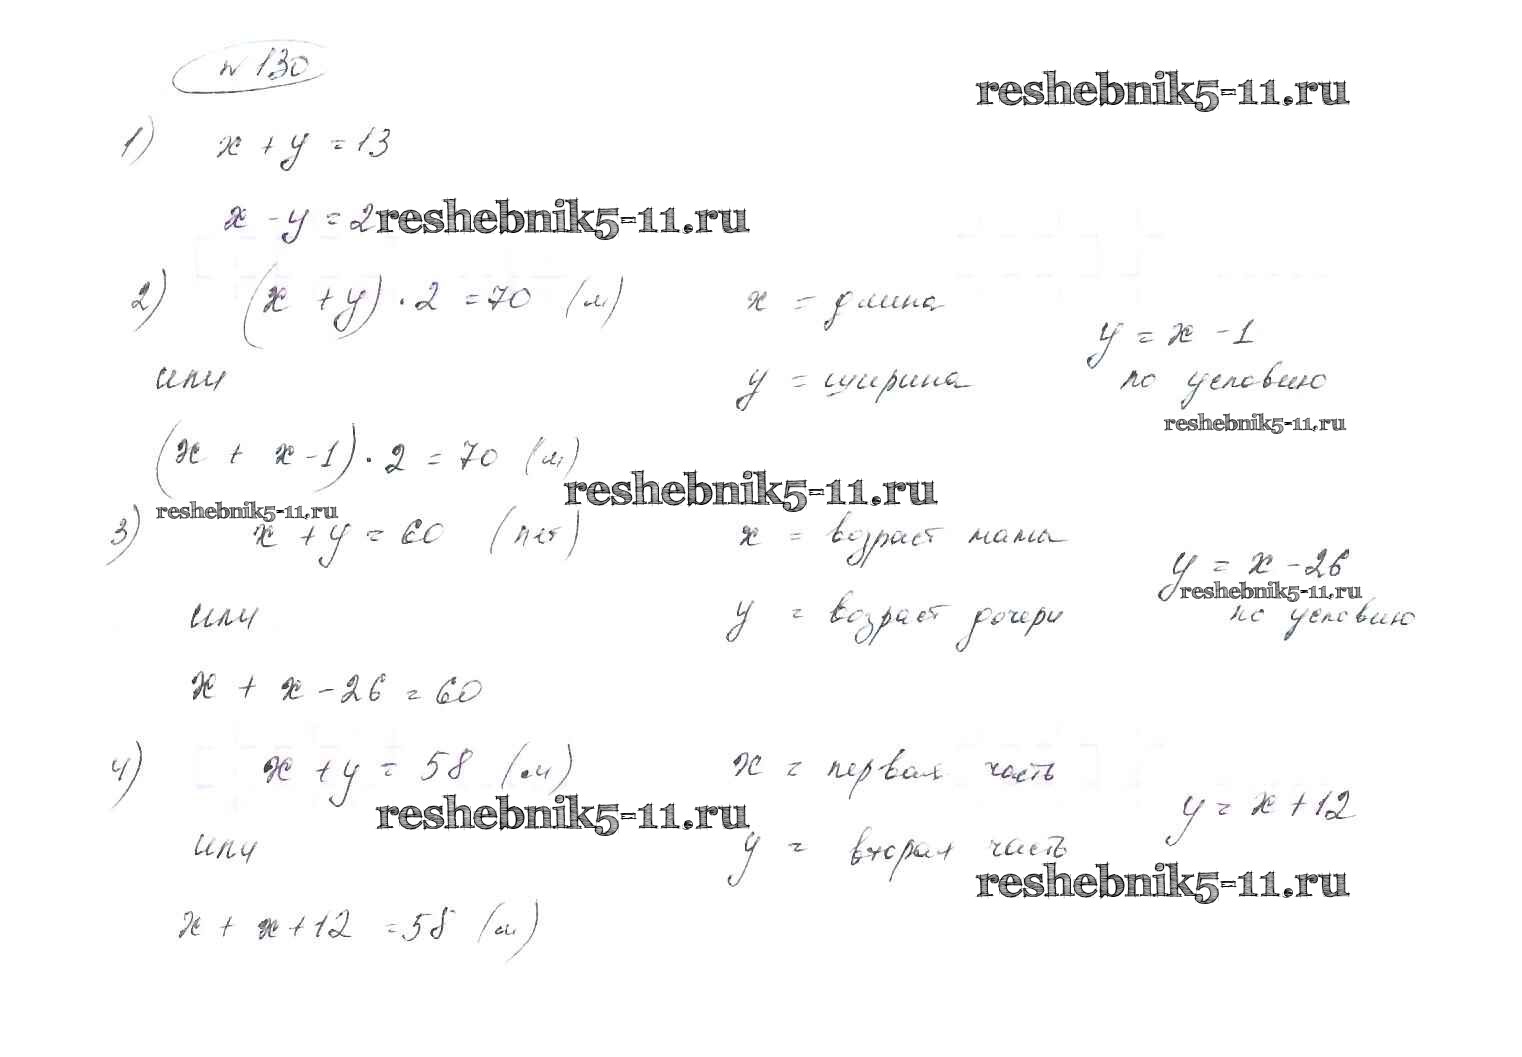 № 130
reshebnik5-11.ru
1) x + y = 13
x - y = 2
reshebnik5-11.ru
2) (x + y) · 2 = 70 (м) x = длина
y = x - 1
или y = ширина по условию
reshebnik5-11.ru
(x + x - 1) · 2 = 70 (м)
reshebnik5-11.ru
reshebnik5-11.ru
3) x + y = 60 (лет) x = возраст мамы
y = x - 26
reshebnik5-11.ru
или y = возраст дочери по условию
x + x - 26 = 60
4) x + y = 58 (м) x = первая часть
y = x + 12
reshebnik5-11.ru
или y = вторая часть
reshebnik5-11.ru
x + x + 12 = 58 (м)